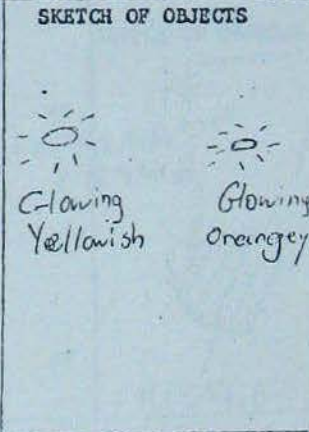 SKETCH OF OBJECTS
Glowing
Yellowish
Glowing
Orangey